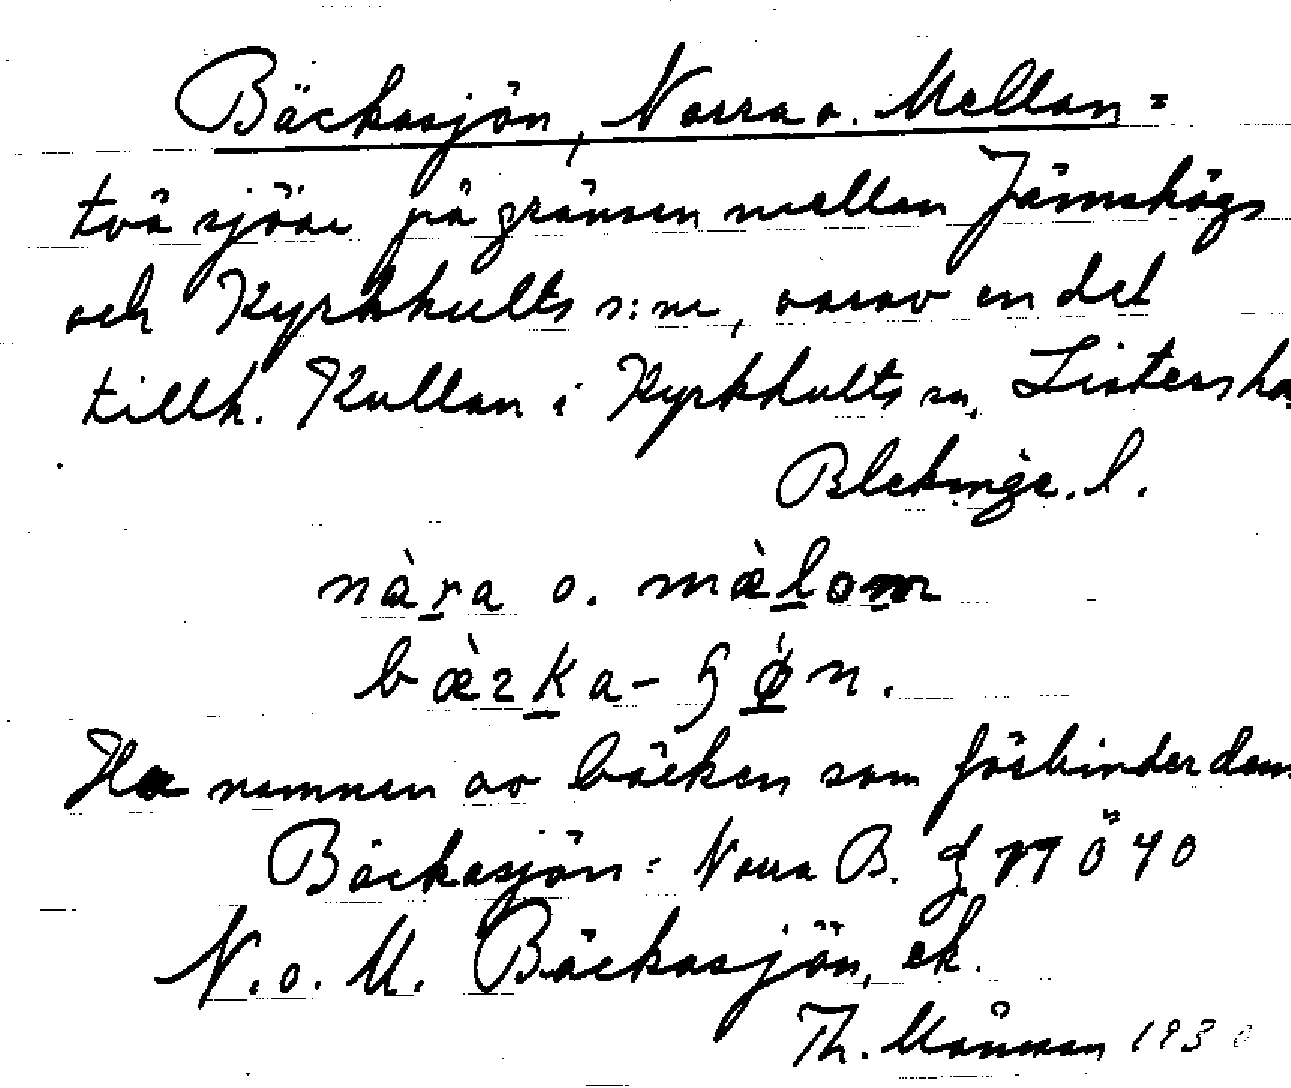 Bäckasjön, Norra o. Mellan =
två sjöar på gränsen mellan Jämshögs
och Kyrkhults s:nr, varav en del
tillh. Kullan i Kyrkhults sn, Listers ha
Blekinge. l.
nàra o. mæ̀lom
bæ̀zka-
Ha namnen av bäcken som förbinder dem
Bäckasjön = Norra B. Ö 40
N. o. M. Bäckasjön, ek.
Th. Månsson 1930